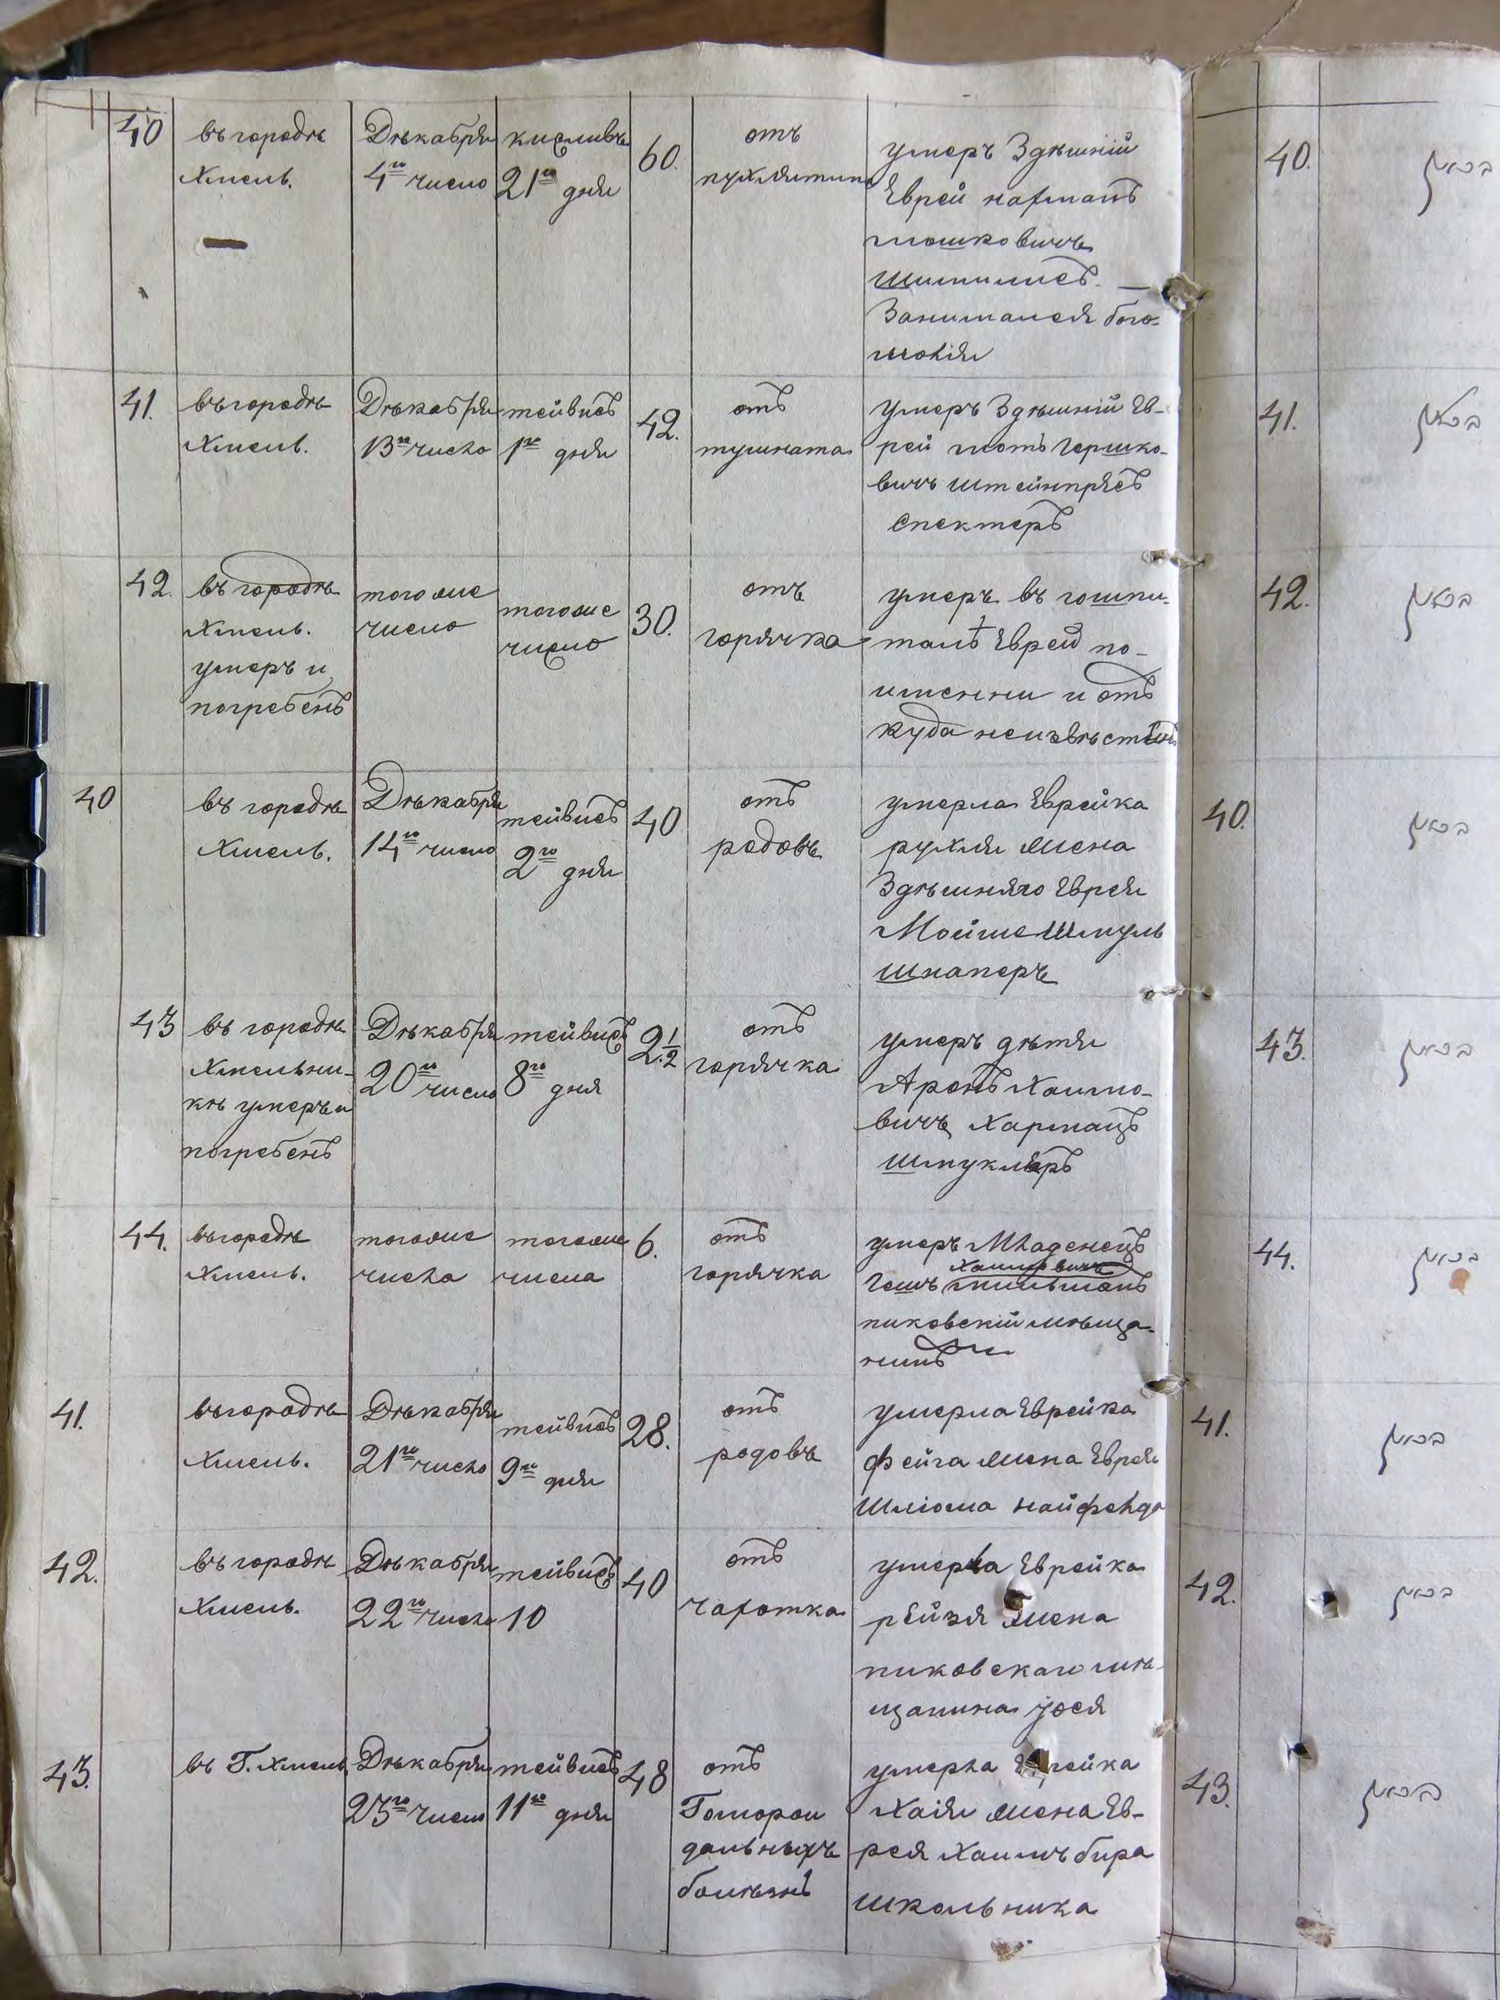 40
въ городѣ
Хмель.
Дѣкабря
4го число
кисливъ
21го дня
60.
отъ
пухлятина
умеръ Здѣшній
Еврей нафтанъ
мошковичъ
Шитилисъ. —
Занимался бого-
молія
40.
41.
въ городѣ
Хмель.
Дѣкабря
13го числа
тейвисъ
1го дня
42.
отъ
тушната
умеръ Здѣшній Ев-
рей мотъ Гершко-
вичъ штейнпрясъ
спектеръ
41.
42.
въ городѣ
Хмель.
умеръ и
погребенъ
тогоже
число
тогоже
число
30.
отъ
горячка
умеръ въ гошпи-
талѣ Еврей по-
именни и отъ
куда неизвѣстенъ
42.
40
въ городѣ
Хмель.
Дѣкабря
14го число
тейвисъ
2го дня
40
отъ
родовъ
умерла Еврейка
рухля жена
Здѣшняго Еврея
Мойше Шмуль
шнаперъ
40.
43
въ городѣ
Хмельни-
кѣ умеръ и
погребенъ
Дѣкабря
20го число
тейвисъ
8го дня
2.½
отъ
горячка
умеръ дѣтя
Аронъ Хаимо-
вичъ Хармацъ
Шмуклеръ
43.
44.
въ городѣ
Хмель.
тогоже
числа
тогоже
числа
6.
отъ
горячка
умеръ Младенецъ
Хаимовичъ
Гешъ
пиковскій мѣща-
нинъ
44.
41.
въ городѣ
Хмель.
Дѣкабря
21го число
тейвисъ
9го дня
28.
отъ
родовъ
умерла Еврейка
фейга жена Еврея
Шліома найфельда
41.
42.
въ городѣ
Хмель.
Дѣкабря
22го числа
тейвисъ
10
40
отъ
чахотка
умерла Еврейка
рейзя жена
пиковскаго мѣ-
щанина Іося
42.
43.
въ Г. Хмель.
Дѣкабря
23го число
тейвисъ
11го дня
48
отъ
Гоморои
дальныхъ
болѣзнъ
умерла Еврейка
Хаія жена Ев-
рея Хаимъ бира
школьника
43.